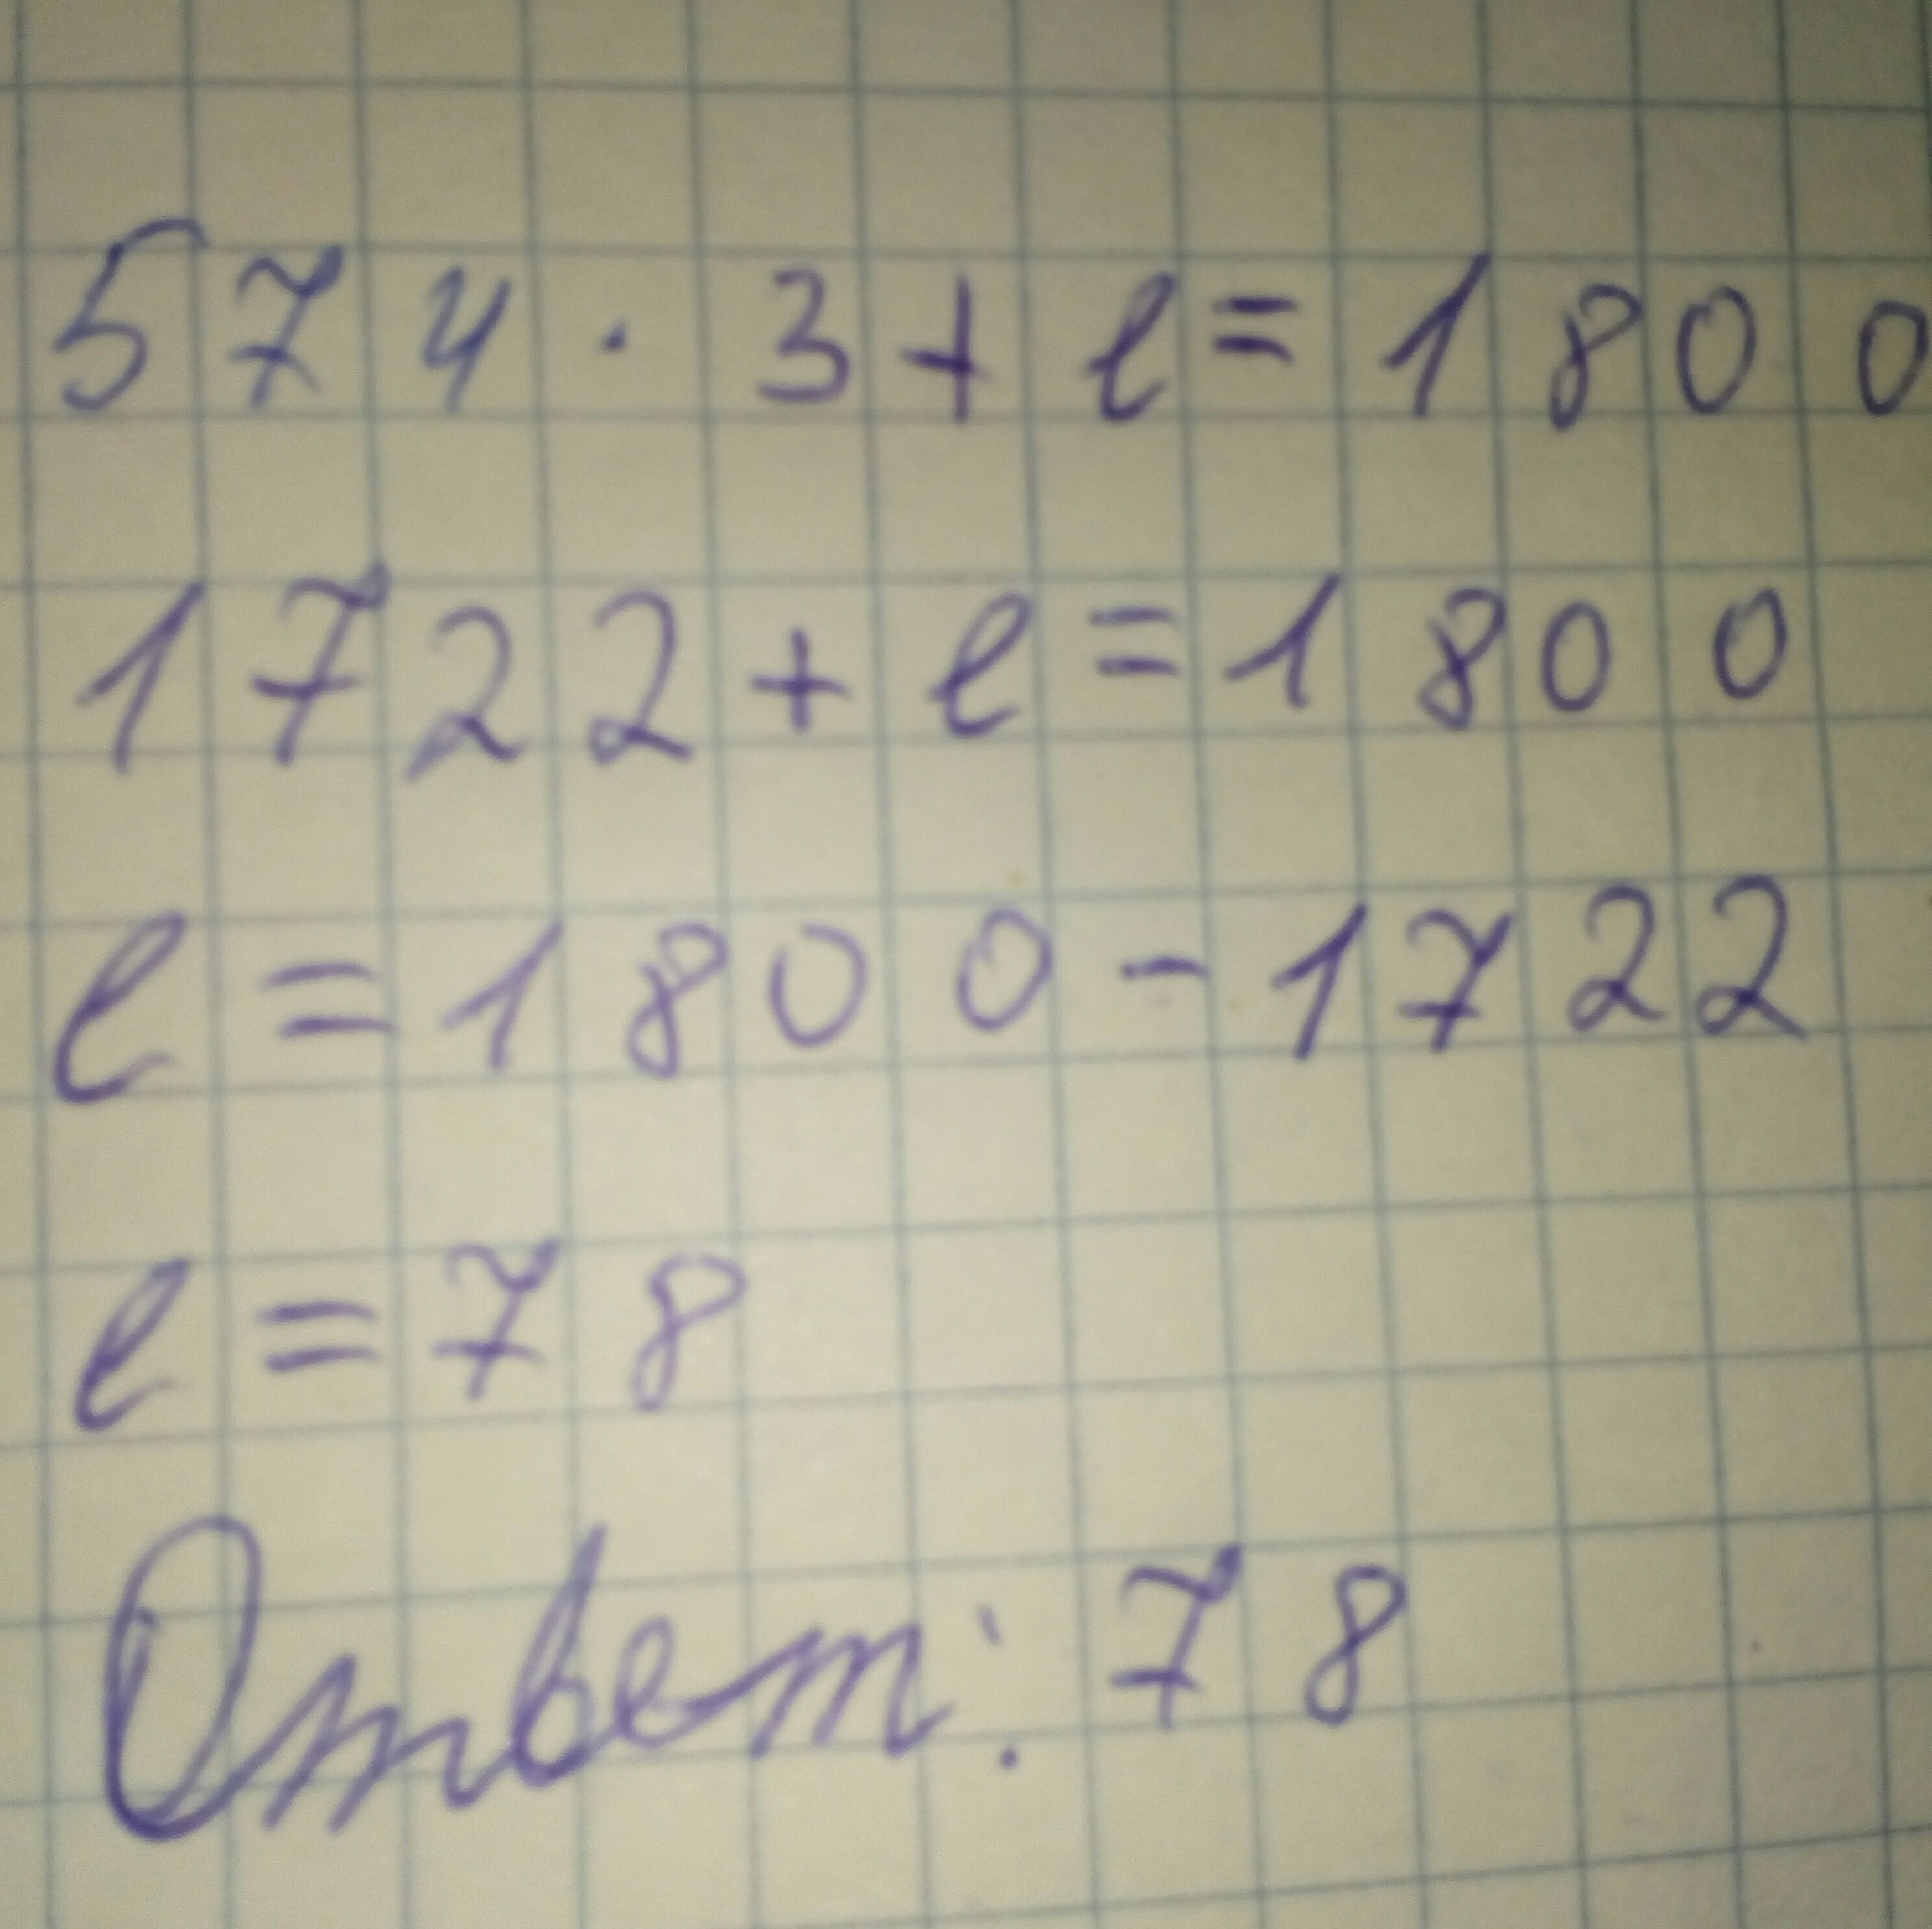 574 · 3 + l = 1800
1722 + l = 1800
l = 1800 - 1722
l = 78
Ответ: 78